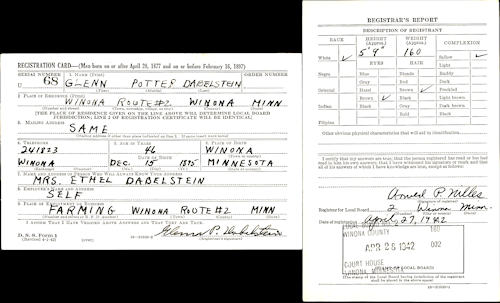 REGISTRATION CARD—(Men born on or after April 28, 1877 and on or before February 16, 1897)
SERIAL NUMBER
1. NAME (Print)
ORDER NUMBER
U 68 GLENN POTTER DABELSTEIN
(First) (Middle) (Last)
2. PLACE OF RESIDENCE (Print)
WINONA ROUTE #2 WINONA MINN
[THE PLACE OF RESIDENCE GIVEN ON THE LINE ABOVE WILL DETERMINE LOCAL BOARD JURISDICTION; LINE 2 OF REGISTRATION CERTIFICATE WILL BE IDENTICAL]
3. MAILING ADDRESS
SAME
[Mailing address if other than place indicated on line 2. If same insert word same]
4. TELEPHONE
5. AGE IN YEARS
6. PLACE OF BIRTH
46
WINONA
DATE OF BIRTH
WINONA DEC. 15 1895 MINNESOTA
7. NAME AND ADDRESS OF PERSON WHO WILL ALWAYS KNOW YOUR ADDRESS
MRS. ETHEL DABELSTEIN
8. EMPLOYER'S NAME AND ADDRESS
SELF
9. PLACE OF EMPLOYMENT OR BUSINESS
FARMING WINONA ROUTE #2 MINN
I AFFIRM THAT I HAVE VERIFIED ABOVE ANSWERS AND THAT THEY ARE TRUE.
D. S. S. Form 1
(Revised 4-1-42)
Glenn P. Dabelstein
(Registrant's signature)
REGISTRAR'S REPORT
DESCRIPTION OF REGISTRANT
RACE
HEIGHT (Approx.)
WEIGHT (Approx.)
COMPLEXION
5' 9"
160
White ✓
Sallow ✓
EYES
HAIR
Light
Negro
Blue
Blonde
Ruddy
Gray
Red
Dark
Oriental
Hazel
Brown ✓
Freckled
Brown ✓
Black
Light brown
Indian
Black
Gray
Dark brown
Bald
Black
Filipino
Other obvious physical characteristics that will aid in identification
I certify that my answers are true; that the person registered has read or has had read to him his own answers; that I have witnessed his signature or mark and that all of his answers of which I have knowledge are true, except as follows:
P. Milles
Registrar for Local Board 2 Winona Minn.
Date of registration April 27, 1942
LOCAL BOARD
WINONA COUNTY
APR 28 1942
COURT HOUSE
WINONA, MINNESOTA
(The stamp of the Local Board having jurisdiction of the registrant shall be placed in the above space)